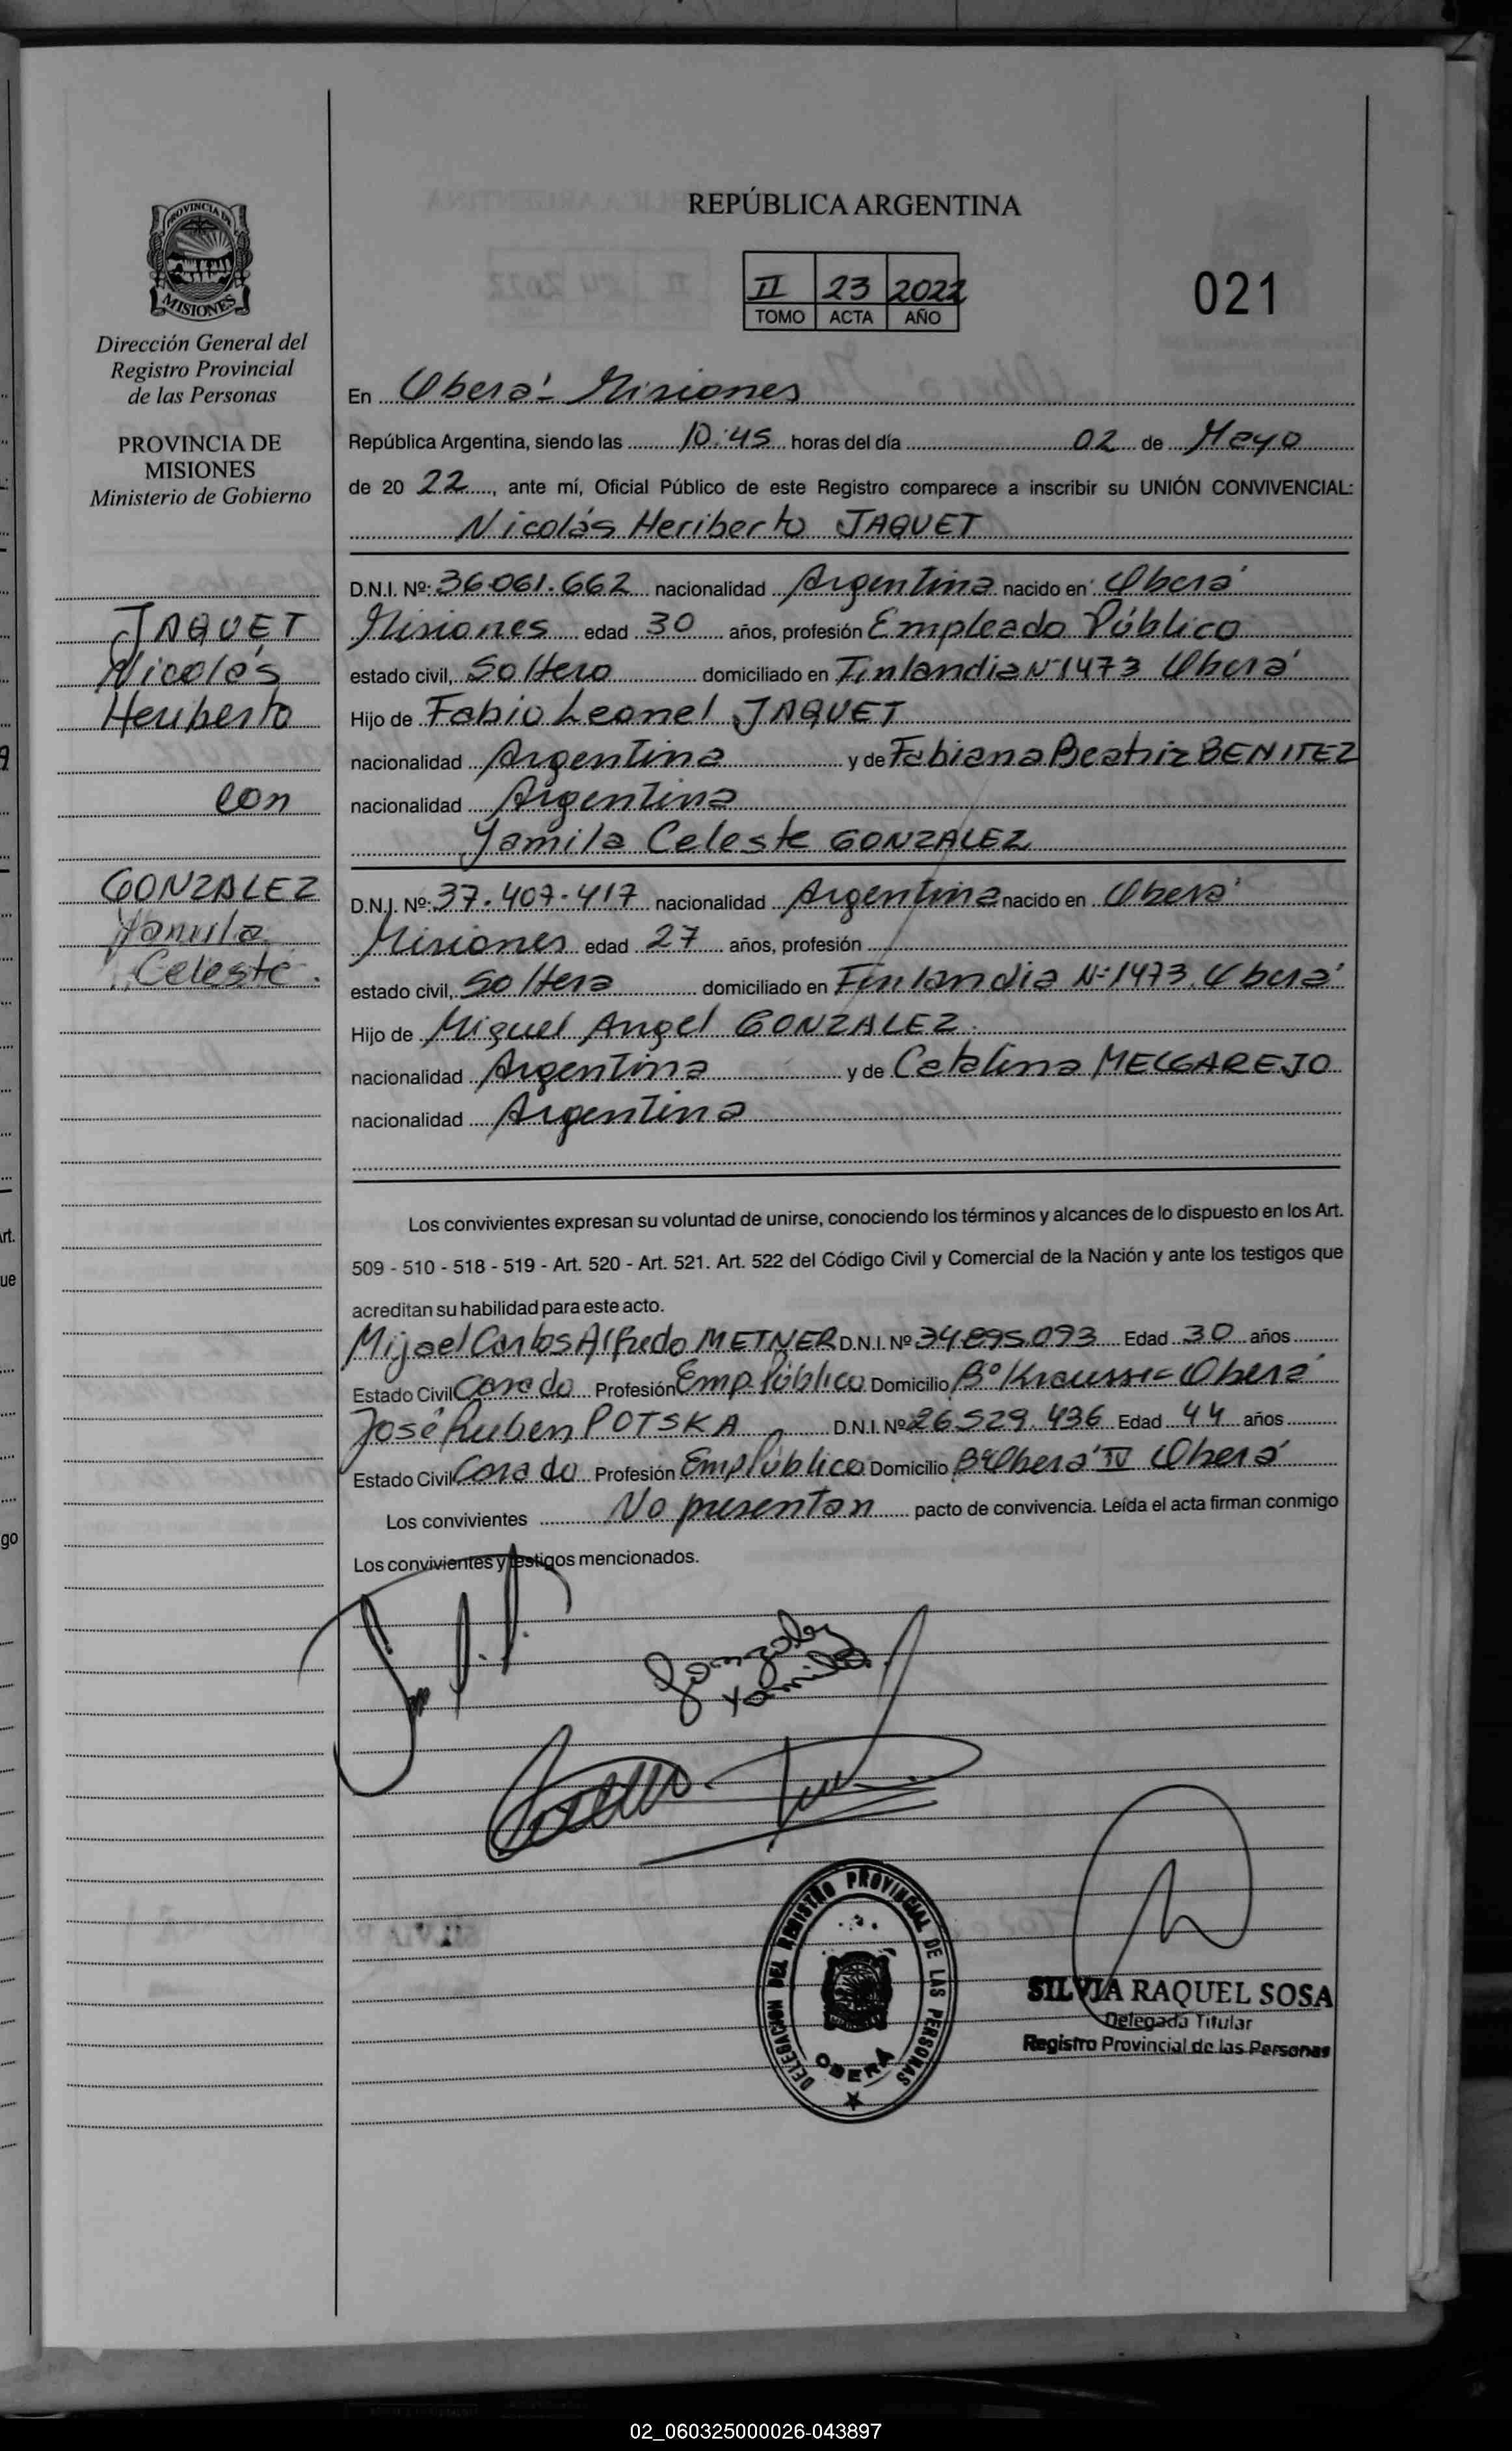 PROVINCIA DE
MISIONES
Dirección General del
Registro Provincial
de las Personas
PROVINCIA DE
MISIONES
Ministerio de Gobierno
JAQUET
Nicolás
Heriberto
con
GONZALEZ
Yamila
Celeste.
REPÚBLICA ARGENTINA
II 23 2022
TOMO ACTA AÑO
021
En Oberá - Misiones
República Argentina, siendo las 10:45 horas del día 02 de Mayo
de 20 22, ante mí, Oficial Público de este Registro comparece a inscribir su UNIÓN CONVIVENCIAL:
Nicolás Heriberto JAQUET
D.N.I. Nº: 36.061.662 nacionalidad Argentina nacido en Oberá
Misiones edad 30 años, profesión Empleado Público
estado civil, Soltero domiciliado en Finlandia Nº 1473 Oberá
Hijo de Fabio Leonel JAQUET
nacionalidad Argentina y de Fabiana Beatriz BENITEZ
nacionalidad Argentina
Yamila Celeste GONZALEZ
D.N.I. Nº: 37.407.417 nacionalidad Argentina nacido en Oberá
Misiones edad 27 años, profesión
estado civil, Soltera domiciliado en Finlandia Nº 1473. Oberá
Hijo de Miguel Angel GONZALEZ.
nacionalidad Argentina y de Catalina MELGAREJO
nacionalidad Argentina
Los convivientes expresan su voluntad de unirse, conociendo los términos y alcances de lo dispuesto en los Art.
509 - 510 - 518 - 519 - Art. 520 - Art. 521. Art. 522 del Código Civil y Comercial de la Nación y ante los testigos que
acreditan su habilidad para este acto.
Mijael Carlos Alfredo METNER D.N.I. Nº 34.895.093 Edad 30 años
Estado Civil Casado Profesión Emp. Público Domicilio Bº Krausse - Oberá
José Ruben POTSKA D.N.I. Nº 26.529.436 Edad 44 años
Estado Civil Casado Profesión Emp Público Domicilio Bº Oberá IV Oberá
Los convivientes No presentan pacto de convivencia. Leída el acta firman conmigo
Los convivientes y testigos mencionados.
Gonzalez
Yamila
DELEGACION DEL REGISTRO PROVINCIAL DE LAS PERSONAS
OBERA
SILVIA RAQUEL SOSA
Delegada Titular
Registro Provincial de las Personas
02_060325000026-043897